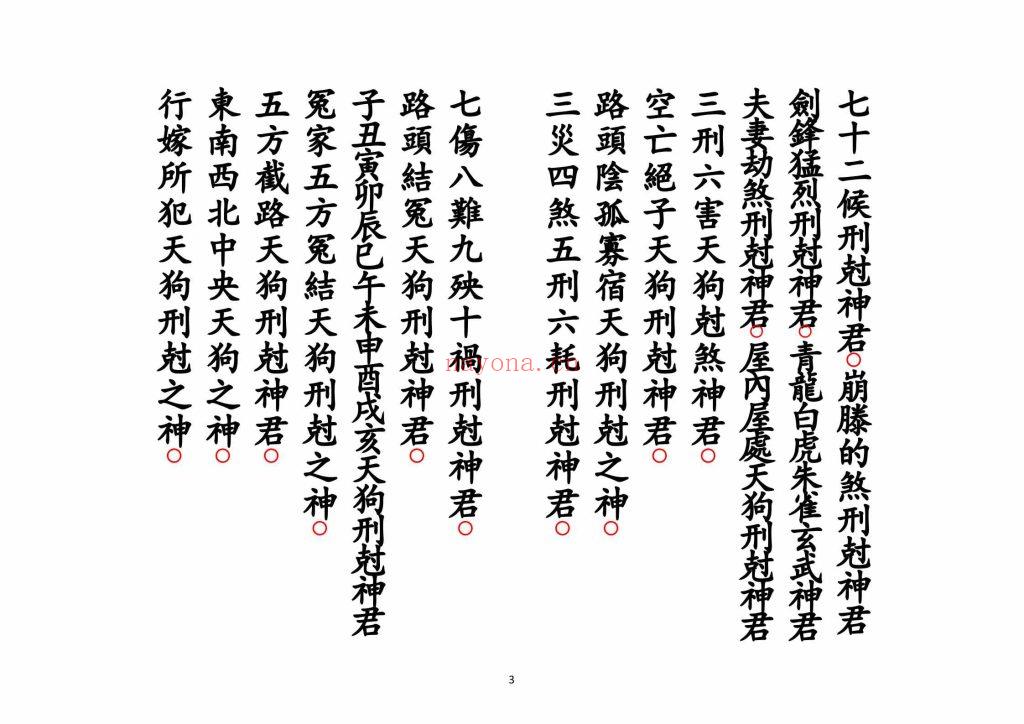 七十二候刑尅神君○崩騰的煞刑尅神君
劍鋒猛烈刑尅神君○青龍白虎朱雀玄武神君
夫妻劫煞刑尅神君○屋內屋處天狗刑尅神君
三刑六害天狗尅煞神君○
空亡絕子天狗刑尅神君○
路頭陰孤寡宿天狗刑尅之神○
三災四煞五刑六耗刑尅神君○
七傷八難九殃十禍刑尅神君○
路頭結冤天狗刑尅神君○
子丑寅卯辰巳午未申酉戌亥天狗刑尅神君
冤家五方冤結天狗刑尅之神○
五方截路天狗刑尅神君○
東南西北中央天狗之神○
行嫁所犯天狗刑尅之神○
nayona.cn
3